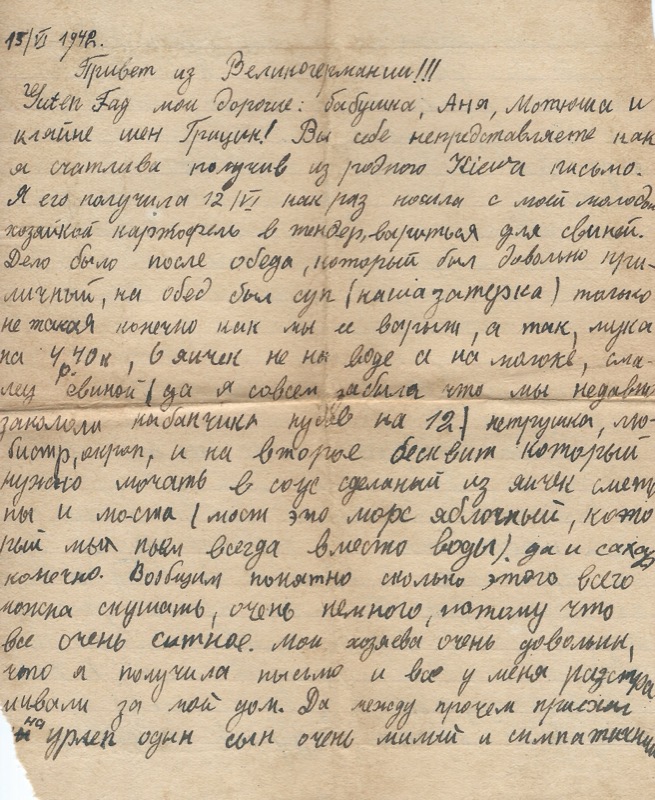 15/VI 1942.
Привет из Великогермании!!!
Гutен Таg мои дорогие: бабушка, Аня, Мотюша и
кляйне шен Грицик! Вы себе непредставляете как
я счатлива получив из родного Kiewa письмо.
Я его получила 12/VI как раз носила с моей молодой
хозяйкой картофель в тендер, вариться для свиней.
Дело было после обеда, который был довольно при-
личный, на обед был суп (наша затерка) только
не такая конечно как мы и варым, а так, мука
на 4р.40к, 6 яичек не на воде а на молоке, сма-
лец свиной (да я совсем забыла что мы недавно
закололи кабанчика пудов на 12) петрушка, лю-
бистр, окроп, и на второе бесквит который
нужно мочать в соус сделаный из яичек смета
ны и моста (мост это морс яблочный, кото
рый мы пьем всегда вместо воды). да и сахар
конечно. Вообщим понятно сколько этого всего
можна скушать, очень немного, потому что
все очень ситное. Мои хозяева очень довольни,
что я получила письмо и все у меня разспра
шивали за мой дом. Да между прочем приехал
на урлеп один сын очень милий и симпатичний